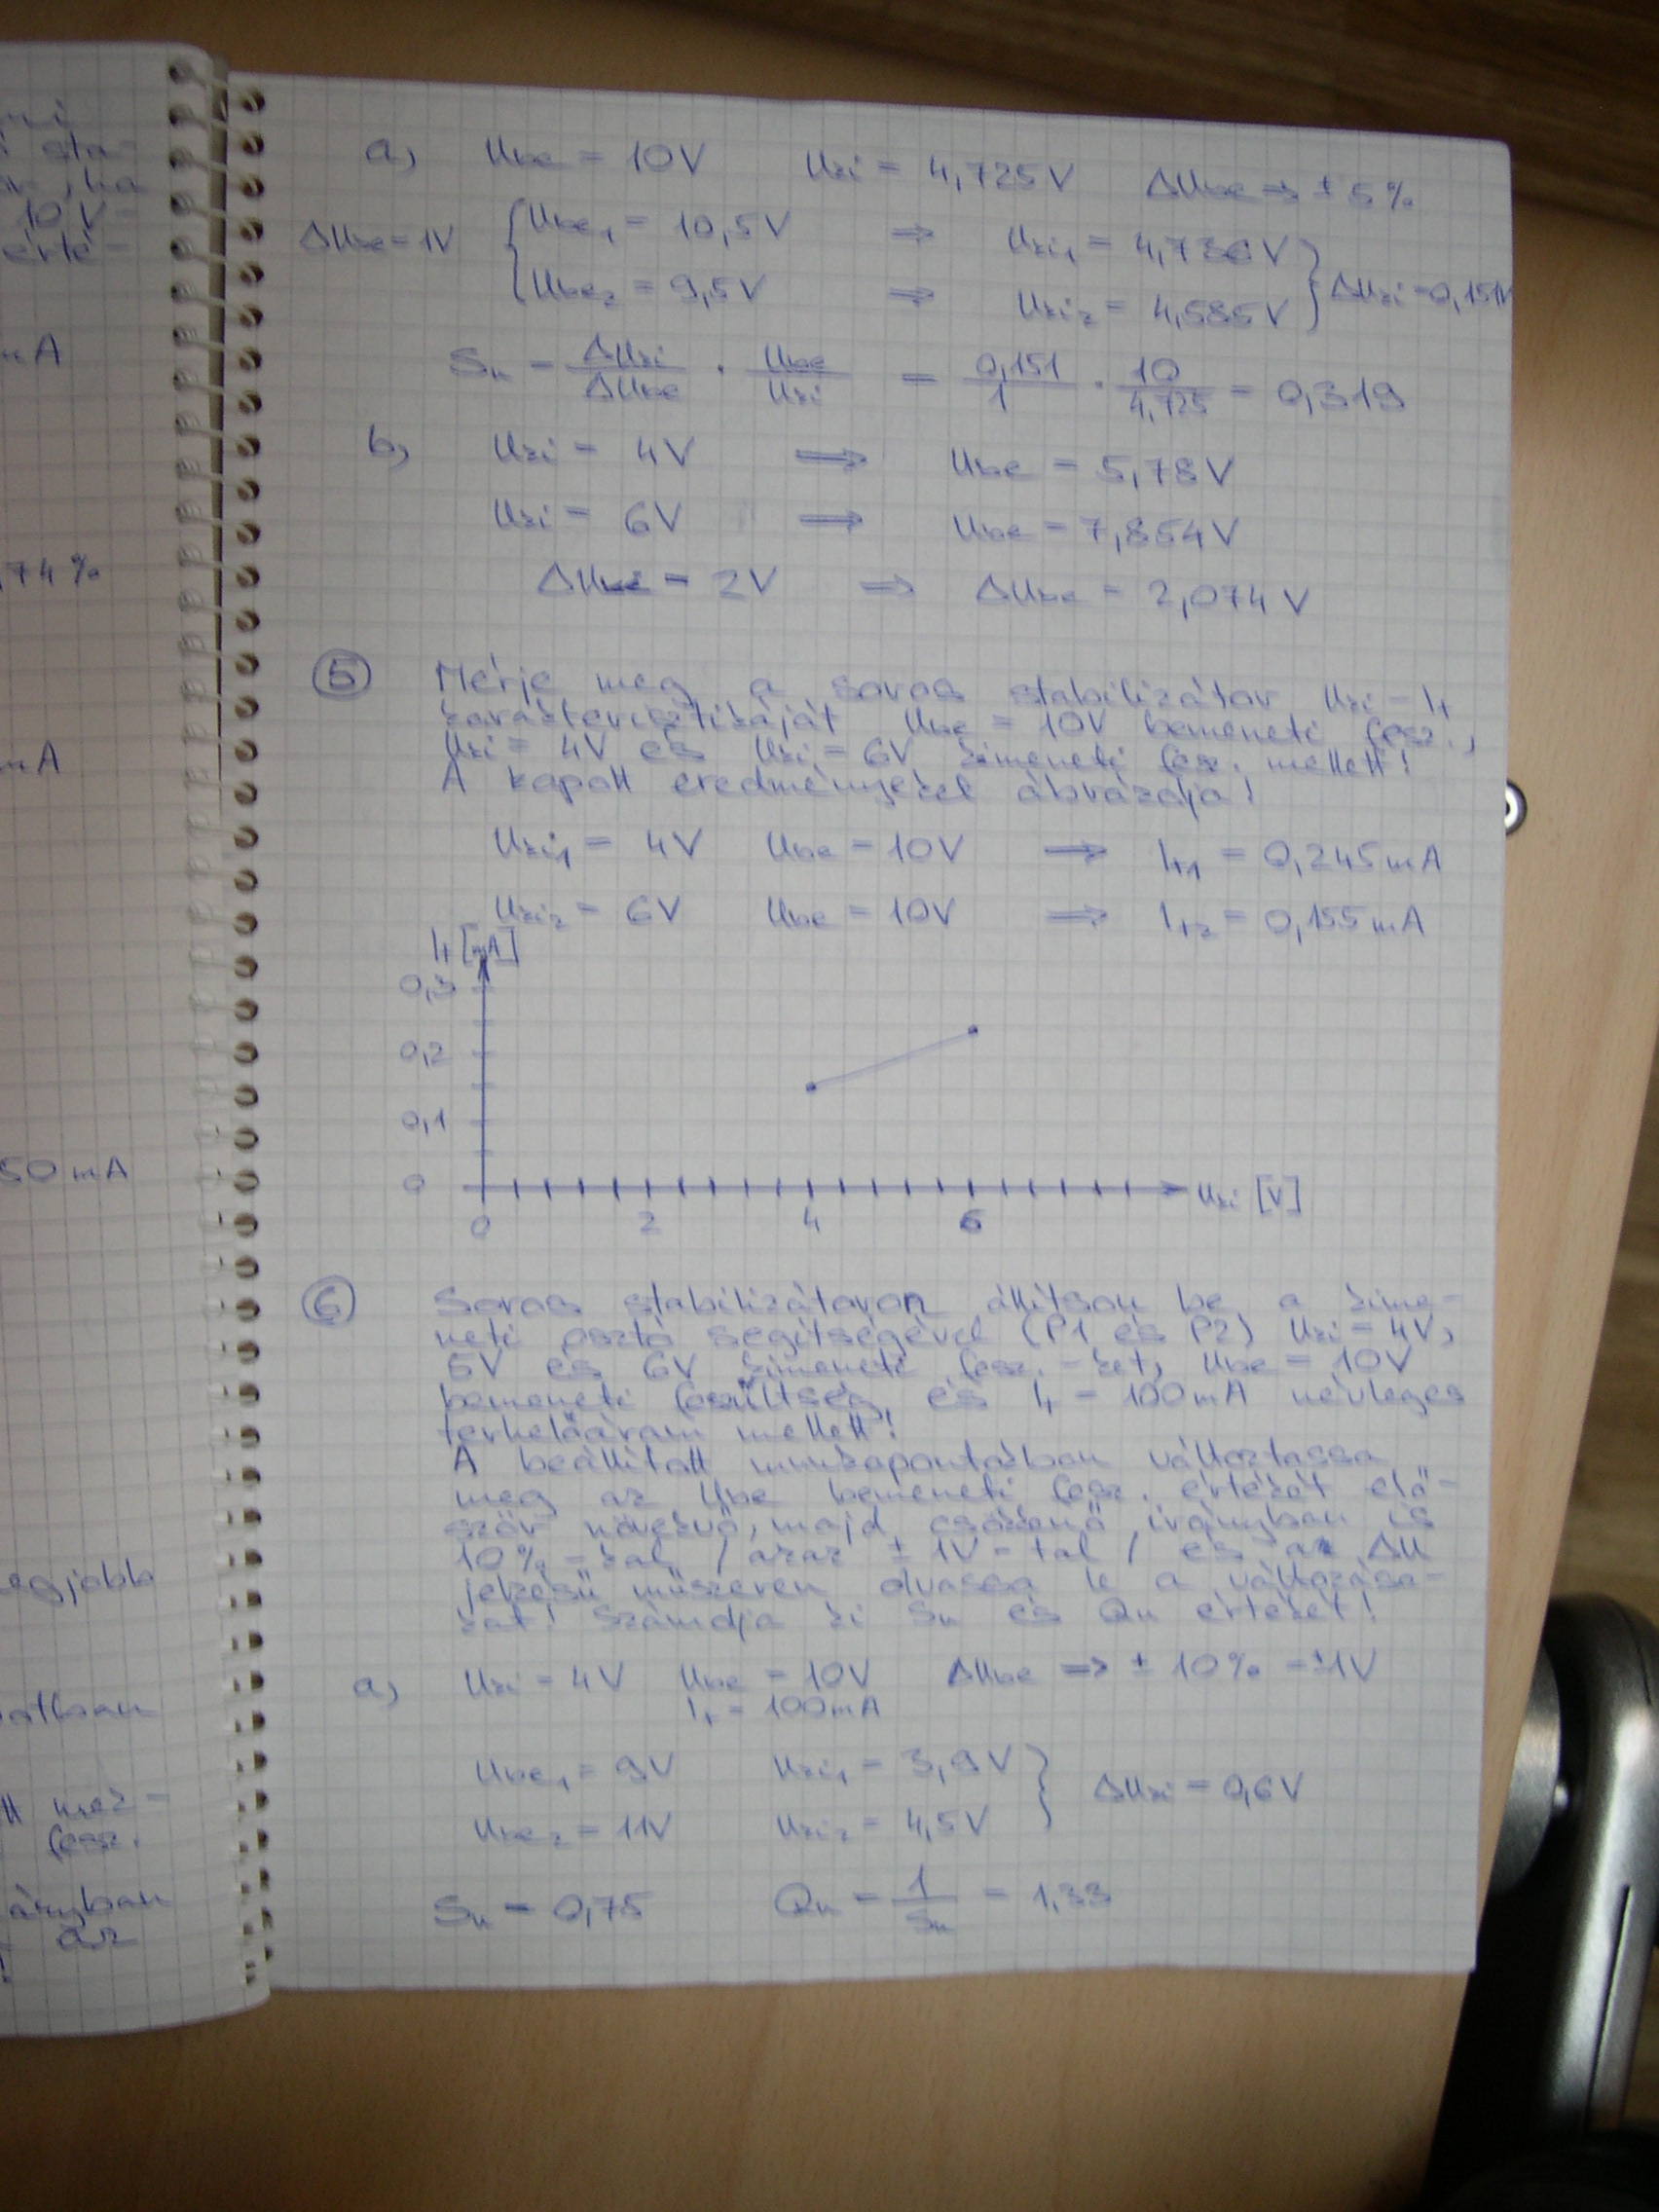 mi
sta-
ha
10 V-
érté-
mA
,74%
mA
50 mA
legjobb
a, Ube = 10V Uki = 4,725V ΔUbe => ± 5%
ΔUbe = 1V { Ube1 = 10,5V => Uki1 = 4,736V } ΔUki = 0,151V
Ube2 = 9,5V => Uki2 = 4,585V
Su = ΔUki/ΔUbe · Ube/Uki = 0,151/1 · 10/4,725 = 0,319
b, Uki = 4V => Ube = 5,78V
Uki = 6V => Ube = 7,854V
ΔUki = 2V => ΔUbe = 2,074V
5 Mérje meg a soros stabilizátor Uki - It
karakterisztikáját Ube = 10V bemeneti fesz.,
Uki = 4V és Uki = 6V kimeneti fesz. mellett!
A kapott eredményeket ábrázolja!
Uki1 = 4V Ube = 10V => It1 = 0,245mA
Uki2 = 6V Ube = 10V => It2 = 0,155mA
It [mA]
0,3
0,2
0,1
0
0 2 4 6 Uki [V]
6 Soros stabilizátoron állítson be a kime-
neti osztó segítségével (P1 és P2) Uki = 4V,
5V és 6V kimeneti fesz.-ket, Ube = 10V
bemeneti feszültség és It = 100mA névleges
terhelőáram mellett!
A beállított munkapontokban változtassa
meg az Ube bemeneti fesz. értékét elő-
ször növekvő, majd csökkenő irányban is
10%-kal / azaz ± 1V-tal / és az ΔU
jelzésű műszeren olvassa le a változáso-
kat! Számolja ki Su és Qu értékét!
a, Uki = 4V Ube = 10V ΔUbe => ± 10% = ±1V
It = 100mA
Ube1 = 9V Uki1 = 3,9V } ΔUki = 0,6V
Ube2 = 11V Uki2 = 4,5V
Su = 0,75 Qu = 1/Su = 1,33